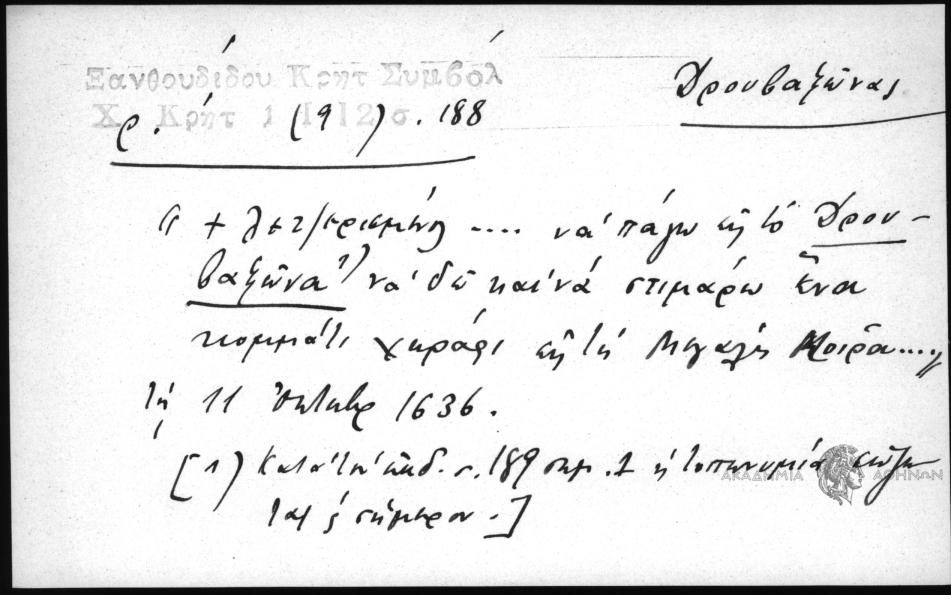 Ξανθουδίδου Κρητ Συμβόλ
Χρ. Κρήτ 1 (1912) σ. 188
Δρουβαξῶνας
« + λετ
.... νὰ πάγω εἰς τὸ Δρου-
βαξῶνα ¹) νὰ δῶ καὶ νὰ στιμάρω ἕνα
κομμάτι χωράφι εἰς τὴ Μεγάλη Μοῖρα....»
τῇ 11 Ὀκτωβρ 1636.
[1) Κατὰ τὸν ἐκδ. σ. 189 σημ. 1 ἡ τοπωνυμία σώζε
ται ς σήμερον.]
ΑΚΑΔΗΜΙΑ ΑΘΗΝΩΝ